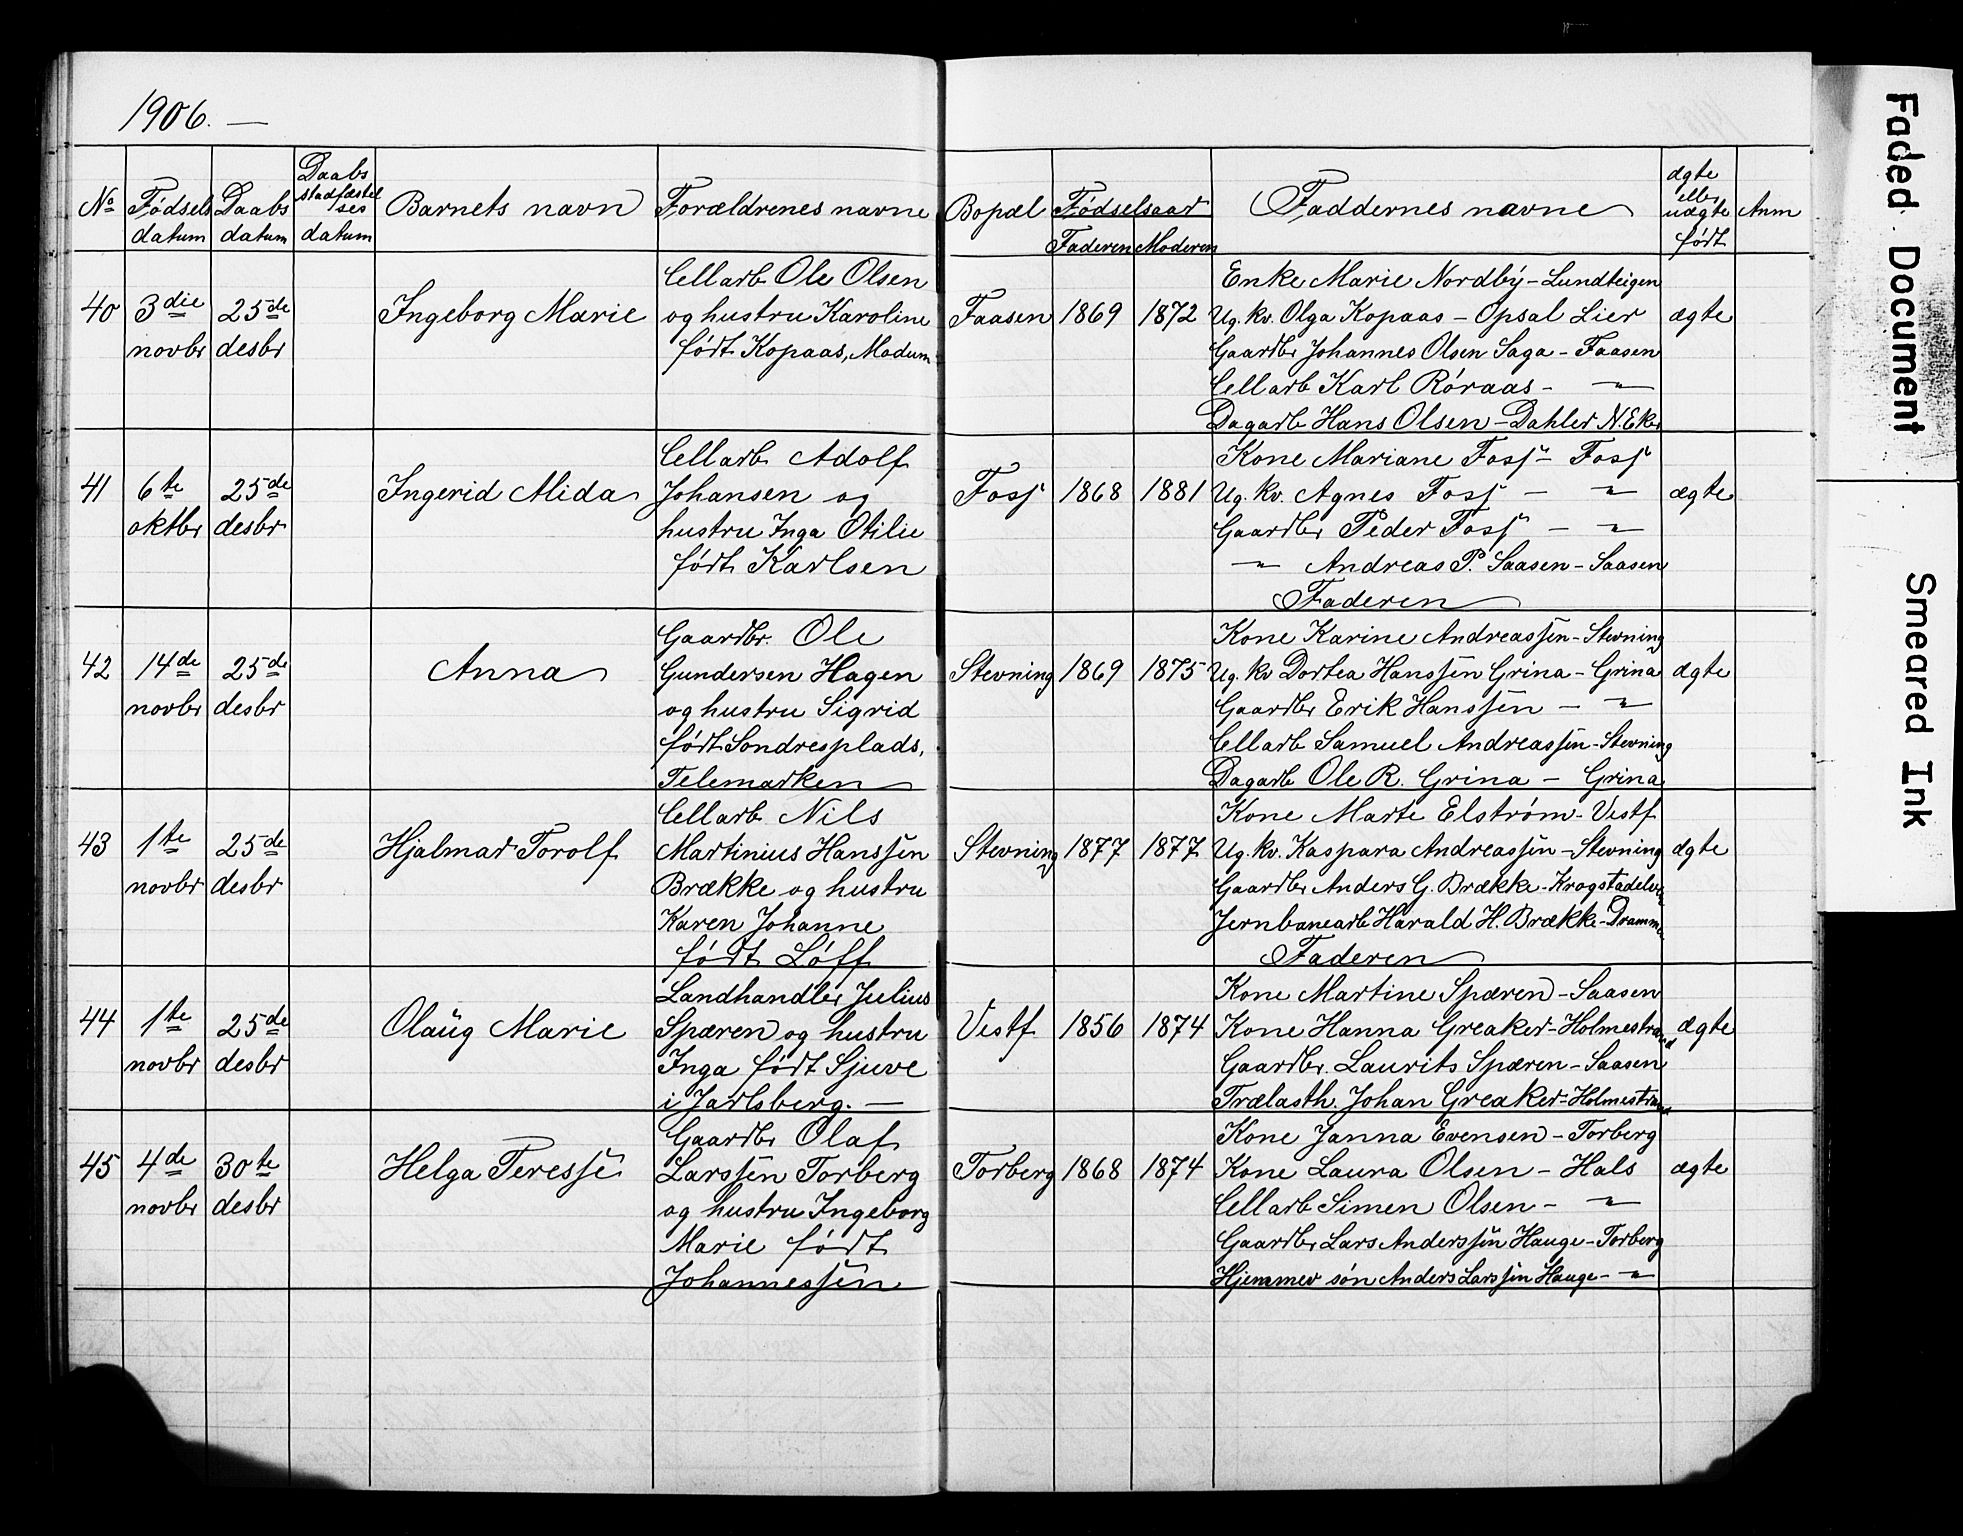 1906. —
No
Fødsels datum
Daabs datum
Daabs stadfæstelses datum
Barnets navn
Forældrenes navne
Bopæl
Fødselsaar
Faderen Moderen
Faddernes navne
ægte eller uægte født
Anm
40
3die novbr
25de desbr
Ingeborg Marie
Cellarb. Ole Olsen
og hustru Karoline
født Kopaas, Modum
Faasen
1869
1872
Enke Marie Nordby - Lundteigen
Ug. kv. Olga Kopaas - Opsal Lier
Gaardbr Johannes Olsen Saga - Faasen
Cellarb Karl Röraas - -"-
Dagarb Hans Olsen - Dahler N. Eker
ægte
41
6te oktbr
25de desbr
Ingerid Alida
Cellarb. Adolf
Johansen og
hustru Inga Otilie
født Karlsen
Foss
1868
1881
Kone Mariane Foss - Foss
Ug. kv. Agnes Foss - -"-
Gaardbr Peder Foss - -"-
-"- Andreas P. Saasen - Saasen
Faderen
ægte
42
14de novbr
25de desbr
Anna
Gaardbr. Ole
Gundersen Hagen
og hustru Sigrid
født Sondresplads,
Telemarken
Stevning
1869
1875
Kone Karine Andreassen - Stevning
Ug. kv Dortea Hanssen Grina - Grina
Gaardbr Erik Hanssen - -"-
Cellarb Samuel Andreassen - Stevning
Dagarb Ole R. Grina - Grina
ægte
43
1te novbr
25de desbr
Hjalmar Torolf
Cellarb. Nils
Martinius Hanssen
Brække og hustru
Karen Johanne
født Löff
Stevning
1877
1877
Kone Marte Elstrøm - Vestf
Ug. kv. Kaspara Andreassen - Stevning
Gaardbr Anders G. Brække - Krogstadelven
Jernbanearb Harald H. Brække - Drammen
Faderen
ægte
44
1te novbr
25de desbr
Olaug Marie
Landhandler Julius
Spæren og hustru
Inga født Sjuve
i Jarlsberg. —
Vestf
1856
1874
Kone Martine Spæren - Saasen
Kone Hanna Greaker - Holmestrand
Gaardbr. Laurits Spæren - Saasen
Trælasth. Johan Greaker - Holmestrand
ægte
45
4de novbr
30te desbr
Helga Teresse
Gaardbr Olaf
Larssen Torberg
og hustru Ingeborg
Marie født
Johannessen
Torberg
1868
1874
Kone Janna Evensen - Torberg
Kone Laura Olsen - Hals
Cellarb Simen Olsen - -"-
Gaardbr Lars Anderssen Hauge - Torberg
Hjemmev søn Anders Larssen Hauge - -"-
ægte
Faded Document
Smeared Ink